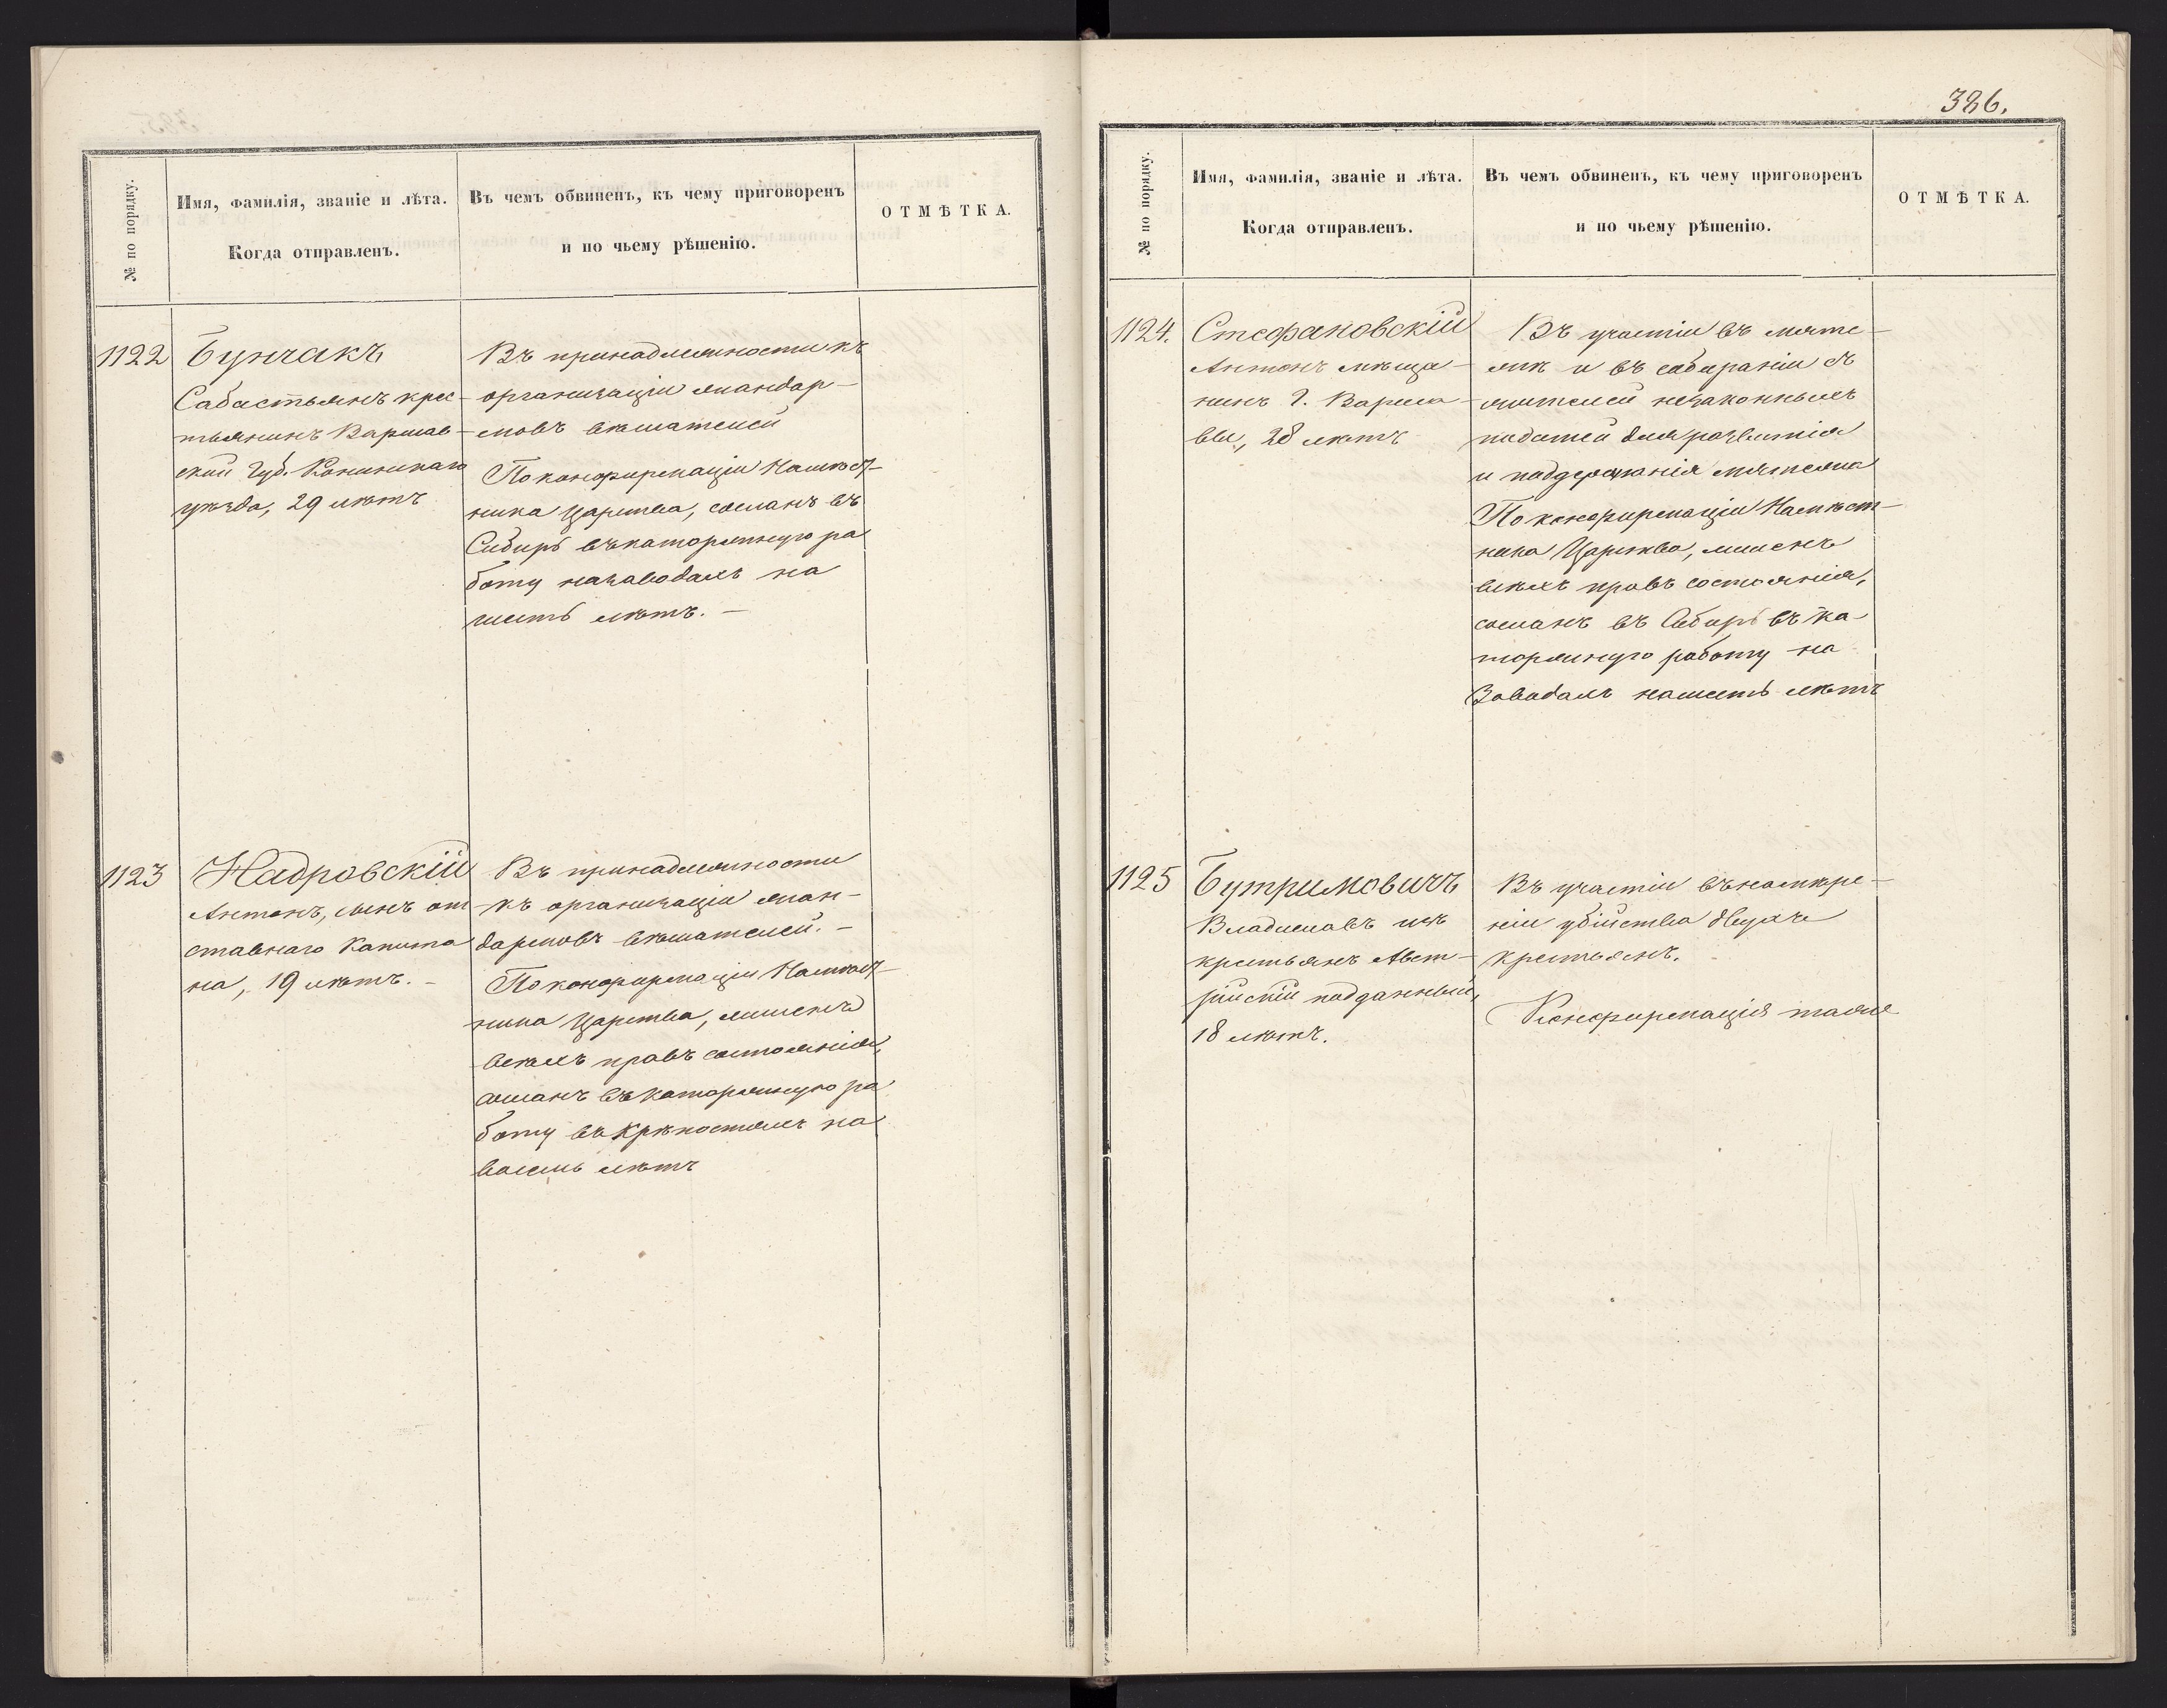 № по порядку.
Имя, фамилія, званіе и лѣта.
Когда отправленъ.
Въ чемъ обвиненъ, къ чему приговоренъ
и по чьему рѣшенію.
ОТМѢТКА.
1122
Бунчакъ
Сабастьянъ крес-
тьянинъ Варшав-
ской Губ. Конинскаго
уѣзда, 29 лѣтъ
Въ принадлежности къ
организаціи жандар-
мовъ вѣшателей
По конфирмаціи Намѣст-
ника Царства, сосланъ въ
Сибирь въ каторжную ра
боту на заводахъ на
шесть лѣтъ. —
1123
Надровскій
Антонъ, сынъ от
ставнаго Капита
на, 19 лѣтъ. -
Въ принадлежности
къ организаціи жан-
дармовъ вѣшателей. -
По конфирмаціи Намѣст-
ника Царства, лишенъ
всѣхъ правъ состоянія,
сосланъ въ каторжную ра
боту въ Крѣпостяхъ на
восемь лѣтъ
386.
№ по порядку.
Имя, фамилія, званіе и лѣта.
Когда отправленъ.
Въ чемъ обвиненъ, къ чему приговоренъ
и по чьему рѣшенію.
ОТМѢТКА.
1124.
Стефановскій
Антонъ мѣща-
нинъ Г. Варша-
вы, 28 лѣтъ
Въ участіи въ мяте-
жѣ и въ собираніи съ
жителей незаконныхъ
податей для развитія
и поддержанія мятежа
По конфирмаціи Намѣст-
ника Царства, лишенъ
всѣхъ правъ состоянія,
сосланъ въ Сибирь въ ка-
торжную работу на
Заводахъ на шесть лѣтъ
1125
Бутримовичъ
Владиславъ изъ
крестьянъ Авст-
рійскій подданный,
18 лѣтъ.
Въ участіи въ намѣре-
ніи убійства двухъ
крестьянъ.
Конфирмація таже